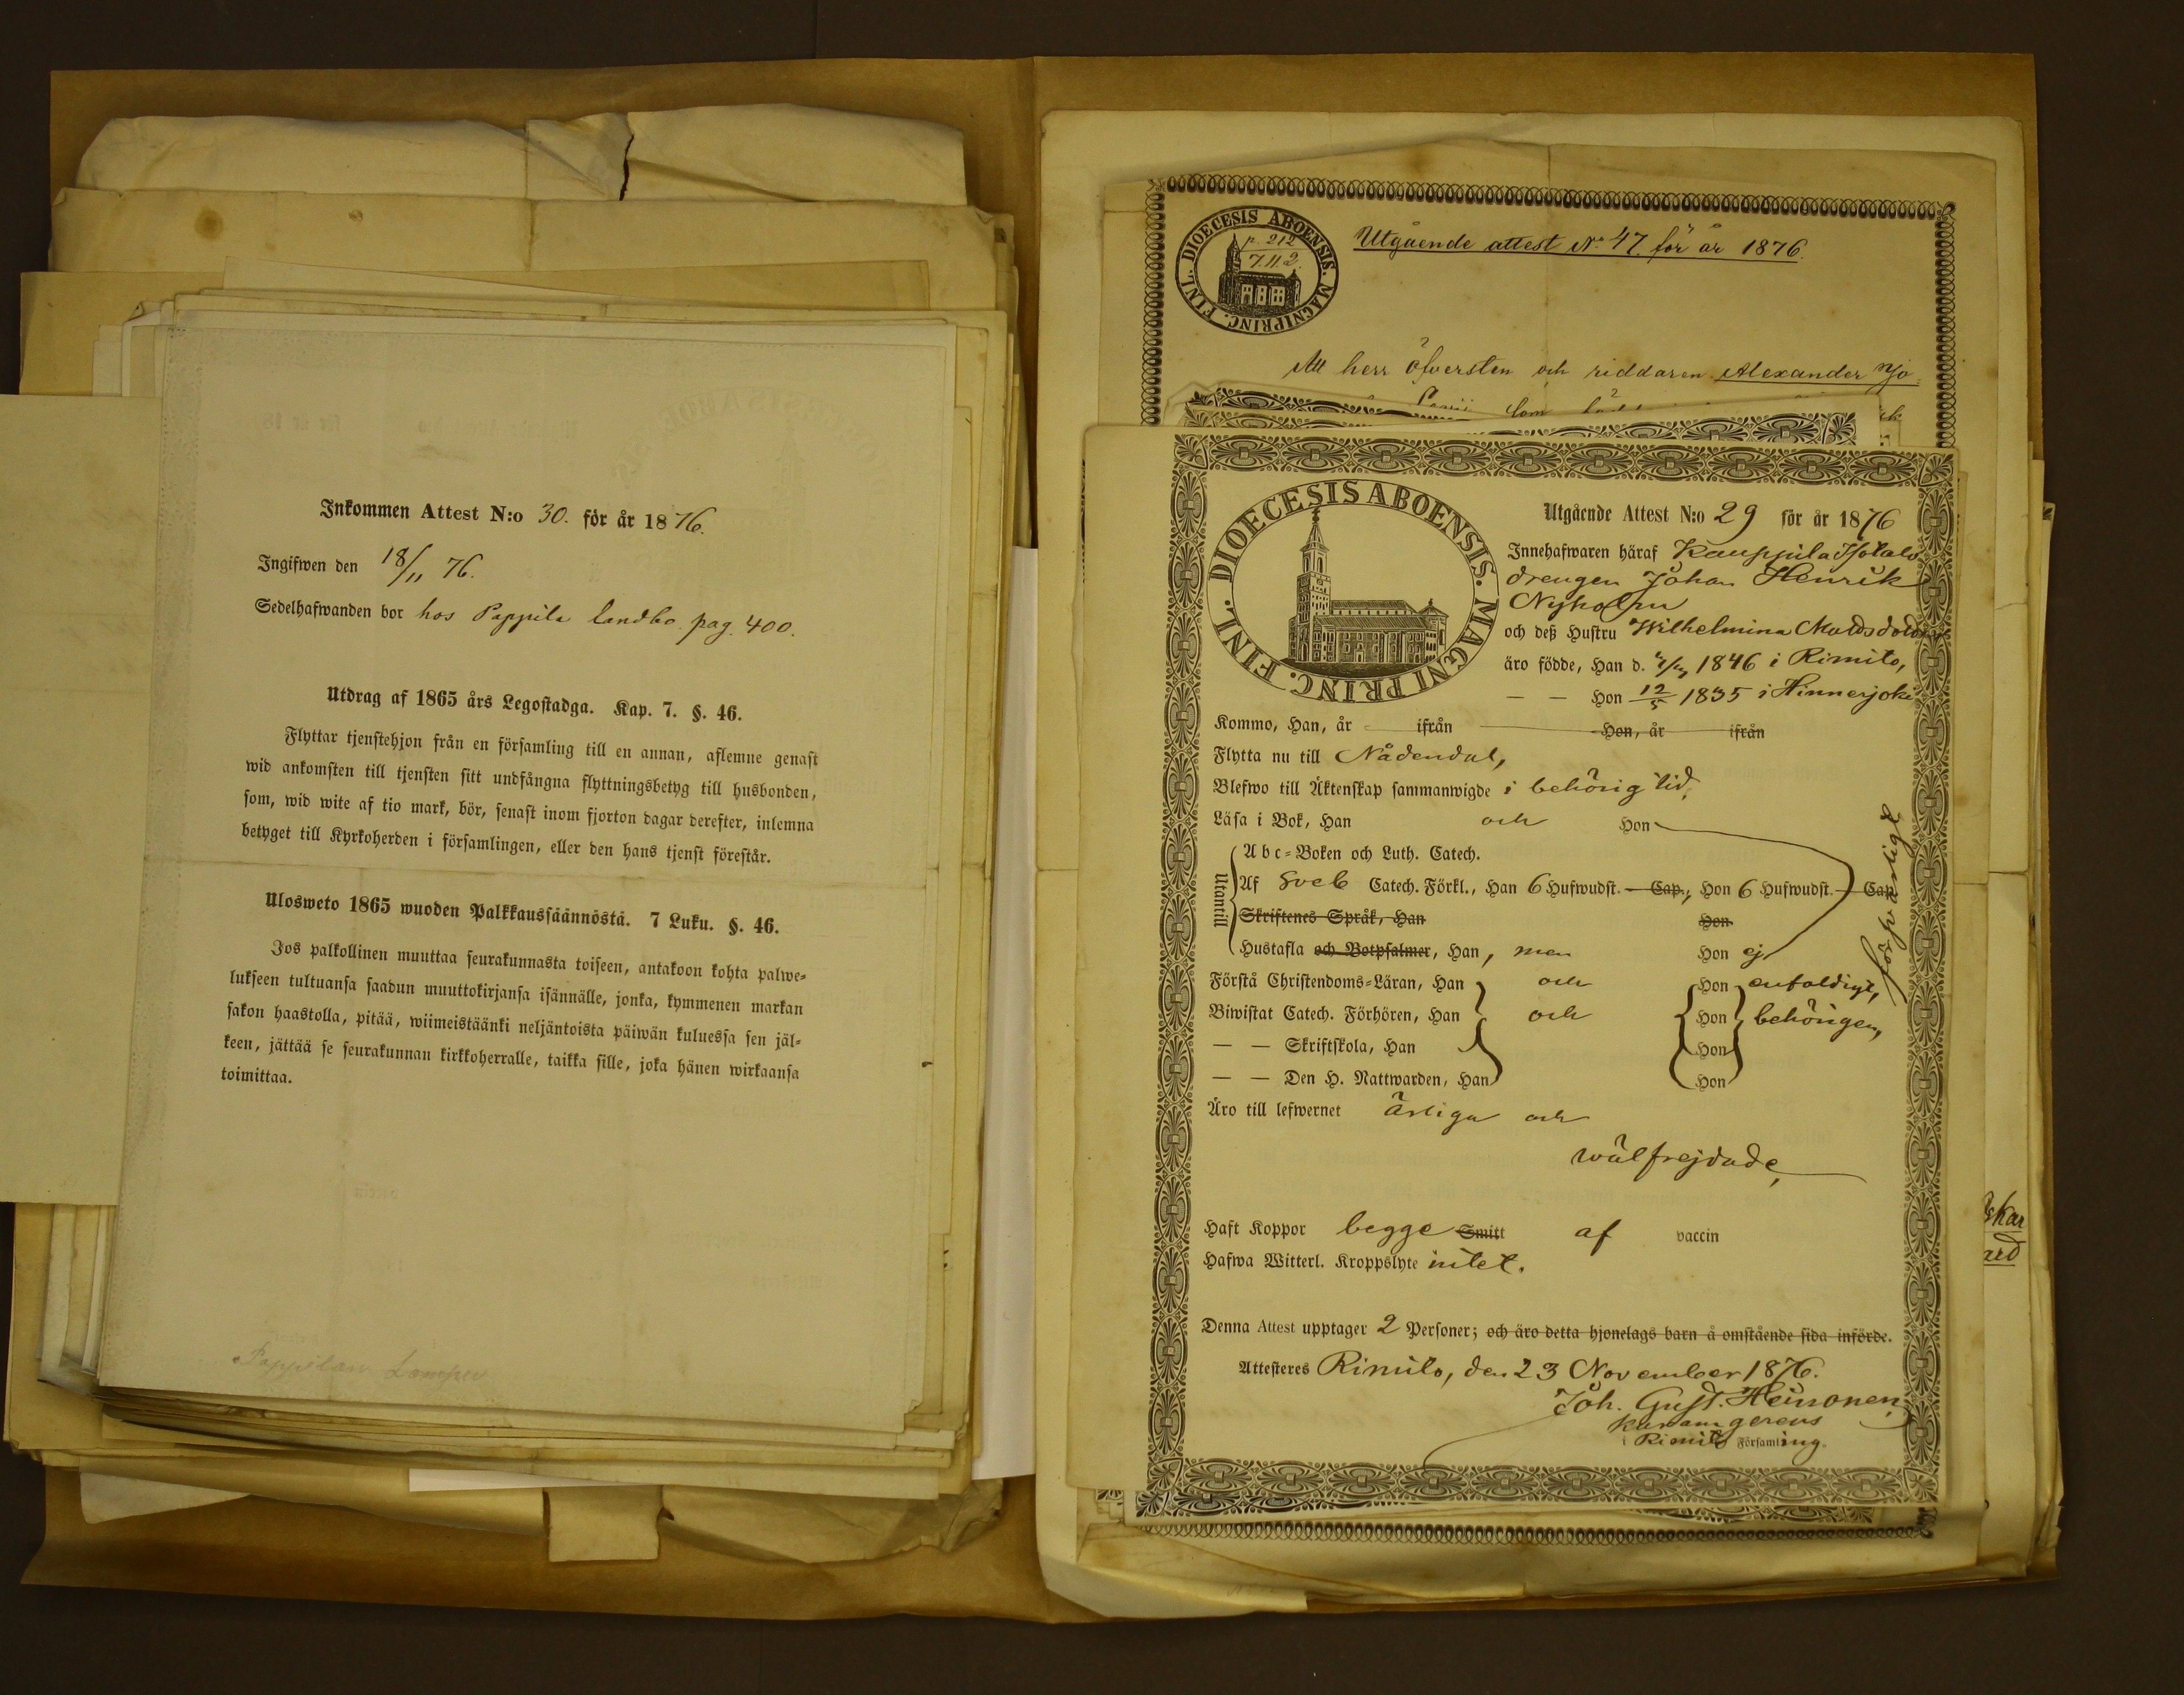 Inkommen Attest N:o 30. för år 1876.
Ingifwen den 18/11 76.
Sedelhafwanden bor hos Pappila landbo. pag. 400.
Utdrag af 1865 års Legostadga. Kap. 7. §. 46.
Flyttar tjenstehjon från en församling till en annan, aflemne genast
wid ankomsten till tjensten sitt undfångna flyttningsbetyg till husbonden,
som, wid wite af tio mark, bör, senast inom fjorton dagar derefter, inlemna
betyget till Kyrkoherden i församlingen, eller den hans tjenst förestår.
Ulosweto 1865 wuoden Palkkaussäännöstä. 7 Luku. §. 46.
Jos palkollinen muuttaa seurakunnasta toiseen, antakoon kohta palwe-
lukseen tultuansa saadun muuttokirjansa isännälle, jonka, kymmenen markan
sakon haastolla, pitää, wiimeistäänki neljäntoista päiwän kuluessa sen jäl-
keen, jättää se seurakunnan kirkkoherralle, taikka sille, joka hänen wirkaansa
toimittaa.
Pappilan Lampu
DIOECESIS ABOENSIS. MAGNI PRINC. FINL.
p. 212
7.11.2.
Utgående attest No 47. för år 1876.
Att herr öfversten och riddaren Alexander
DIOECESIS ABOENSIS. MAGNI PRINC. FINL.
Utgående Attest N:o 29 för år 1876
Innehafwaren häraf Kauppila Isotalo
drengen Johan Henrik
Nyholm
och deß Hustru Wilhelmina
äro födde, Han d. 1846 i Rimito,
— — Hon 12/5 1835 i Hinnerjoki
Kommo, Han, år ifrån Hon, år ifrån
Flytta nu till Nådendal,
Blefwo till Äktenskap sammanwigde i behörig tid,
Läsa i Bok, Han och Hon
försvarligt
Utantill
Abc-Boken och Luth. Catech.
Af Sveb Catech. Förkl., Han 6 Hufwudst. Cap., Hon 6 Hufwudst. Cap.
Skriftenes Språk, Han Hon
Hustafla och Botpsalmer, Han, men Hon ej
Förstå Christendoms-Läran, Han och Hon enfaldigt,
Biwistat Catech. Förhören, Han och Hon behörigen,
— — Skriftskola, Han Hon
— — Den H. Nattwarden, Han Hon
Äro till lefwernet ärliga och
wälfrejdade,
Haft Koppor begge Smitt af vaccin
Hafwa Witterl. Kroppslyte intet.
Denna Attest upptager 2 Personer; och äro detta hjonelags barn å omstående sida införde.
Attesteres Rimito, den 23 November 1876.
Joh. Gust. Heinonen,
gerens
i Rimito Församling.